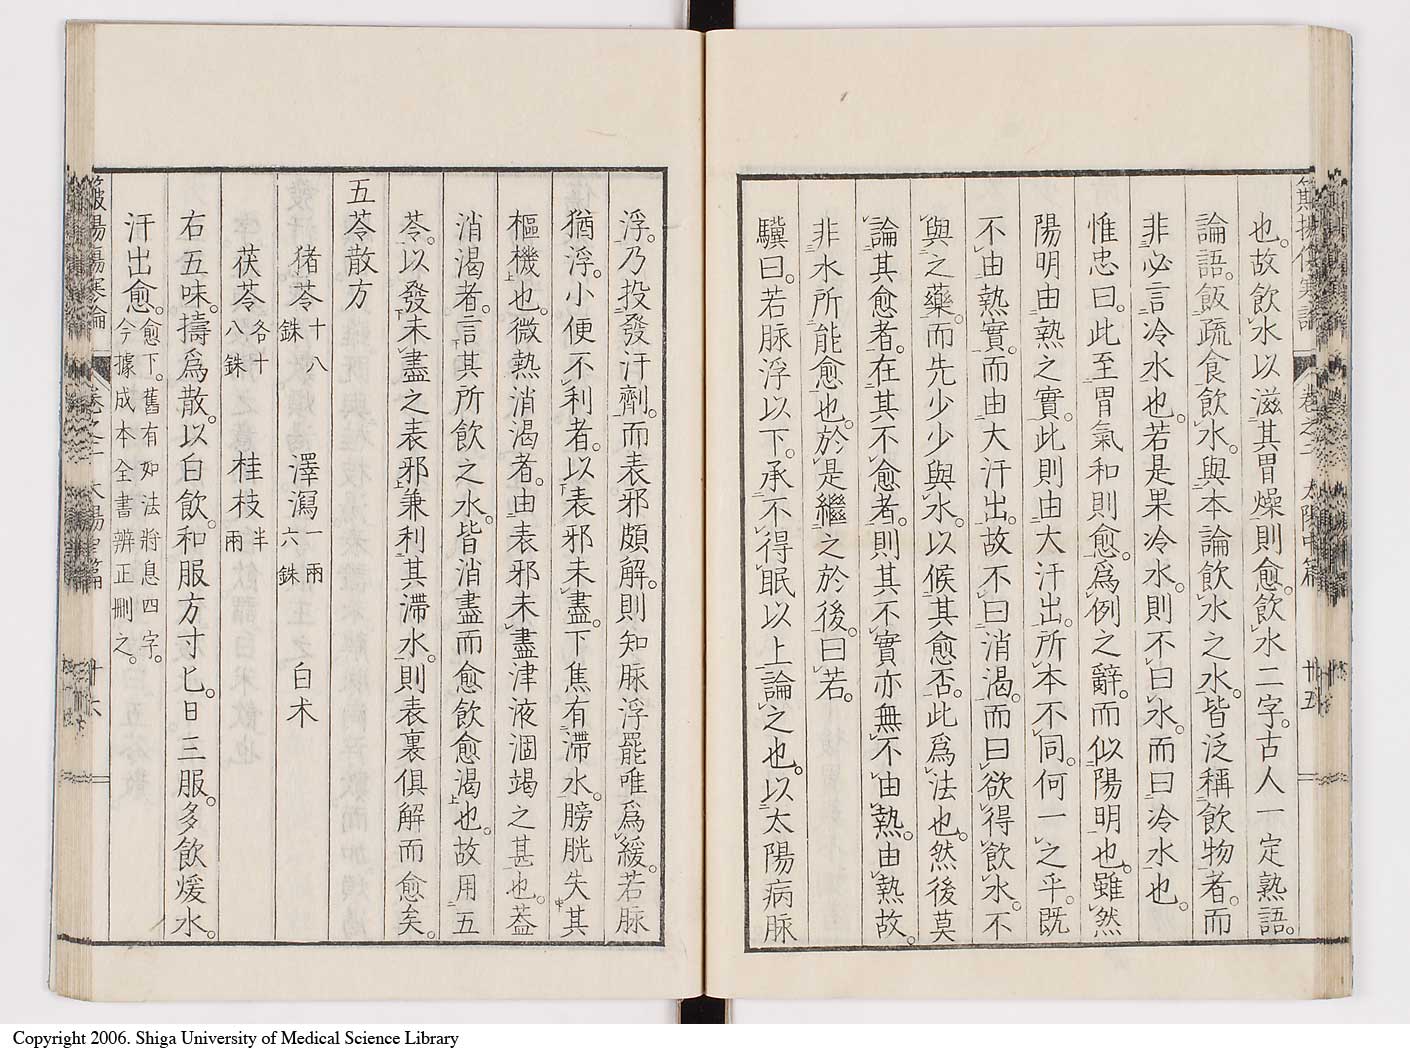 也。故飲水以滋其胃燥則愈。飲水二字。古人一定熟語。
論語。飯疏食飲水。與本論飲水之水。皆泛稱飲物者。而
非必言冷水也。若是果冷水。則不曰水。而曰冷水也。
惟忠曰。此至胃氣和則愈。爲例之辭。而似陽明也。雖然
陽明由熱之實。此則由大汗出。所本不同。何一之乎。既
不由熱實。而由大汗出。故不曰消渴。而曰欲得飲水。不
與之藥。而先少少與水。以候其愈否。此爲法也。然後莫
論其愈者。在其不愈者。則其不實亦無不由熱。由熱故。
非水所能愈也。於是繼之於後。曰若。
驥曰。若脈浮以下。承不得眠以上論之也。以太陽病脈
浮。乃投發汗劑。而表邪頗解。則知脈浮罷唯爲緩。若脈
猶浮。小便不利者。以表邪未盡。下焦有滯水。膀胱失其
樞機也。微熱消渴者。由表邪未盡津液涸竭之甚也。蓋
消渴者。言其所飲之水。皆消盡而愈飲愈渴也。故用五
苓。以發未盡之表邪兼利其滯水。則表裏俱解而愈矣。
五苓散方
猪苓十八銖 澤瀉一兩六銖 白朮
茯苓各十八銖 桂枝半兩
右五味。擣爲散。以白飲。和服方寸匕。日三服。多飲煖水。
汗出愈。愈下。舊有如法將息四字。今據成本全書辨正刪之。
卷之二
太陽中篇
廿五